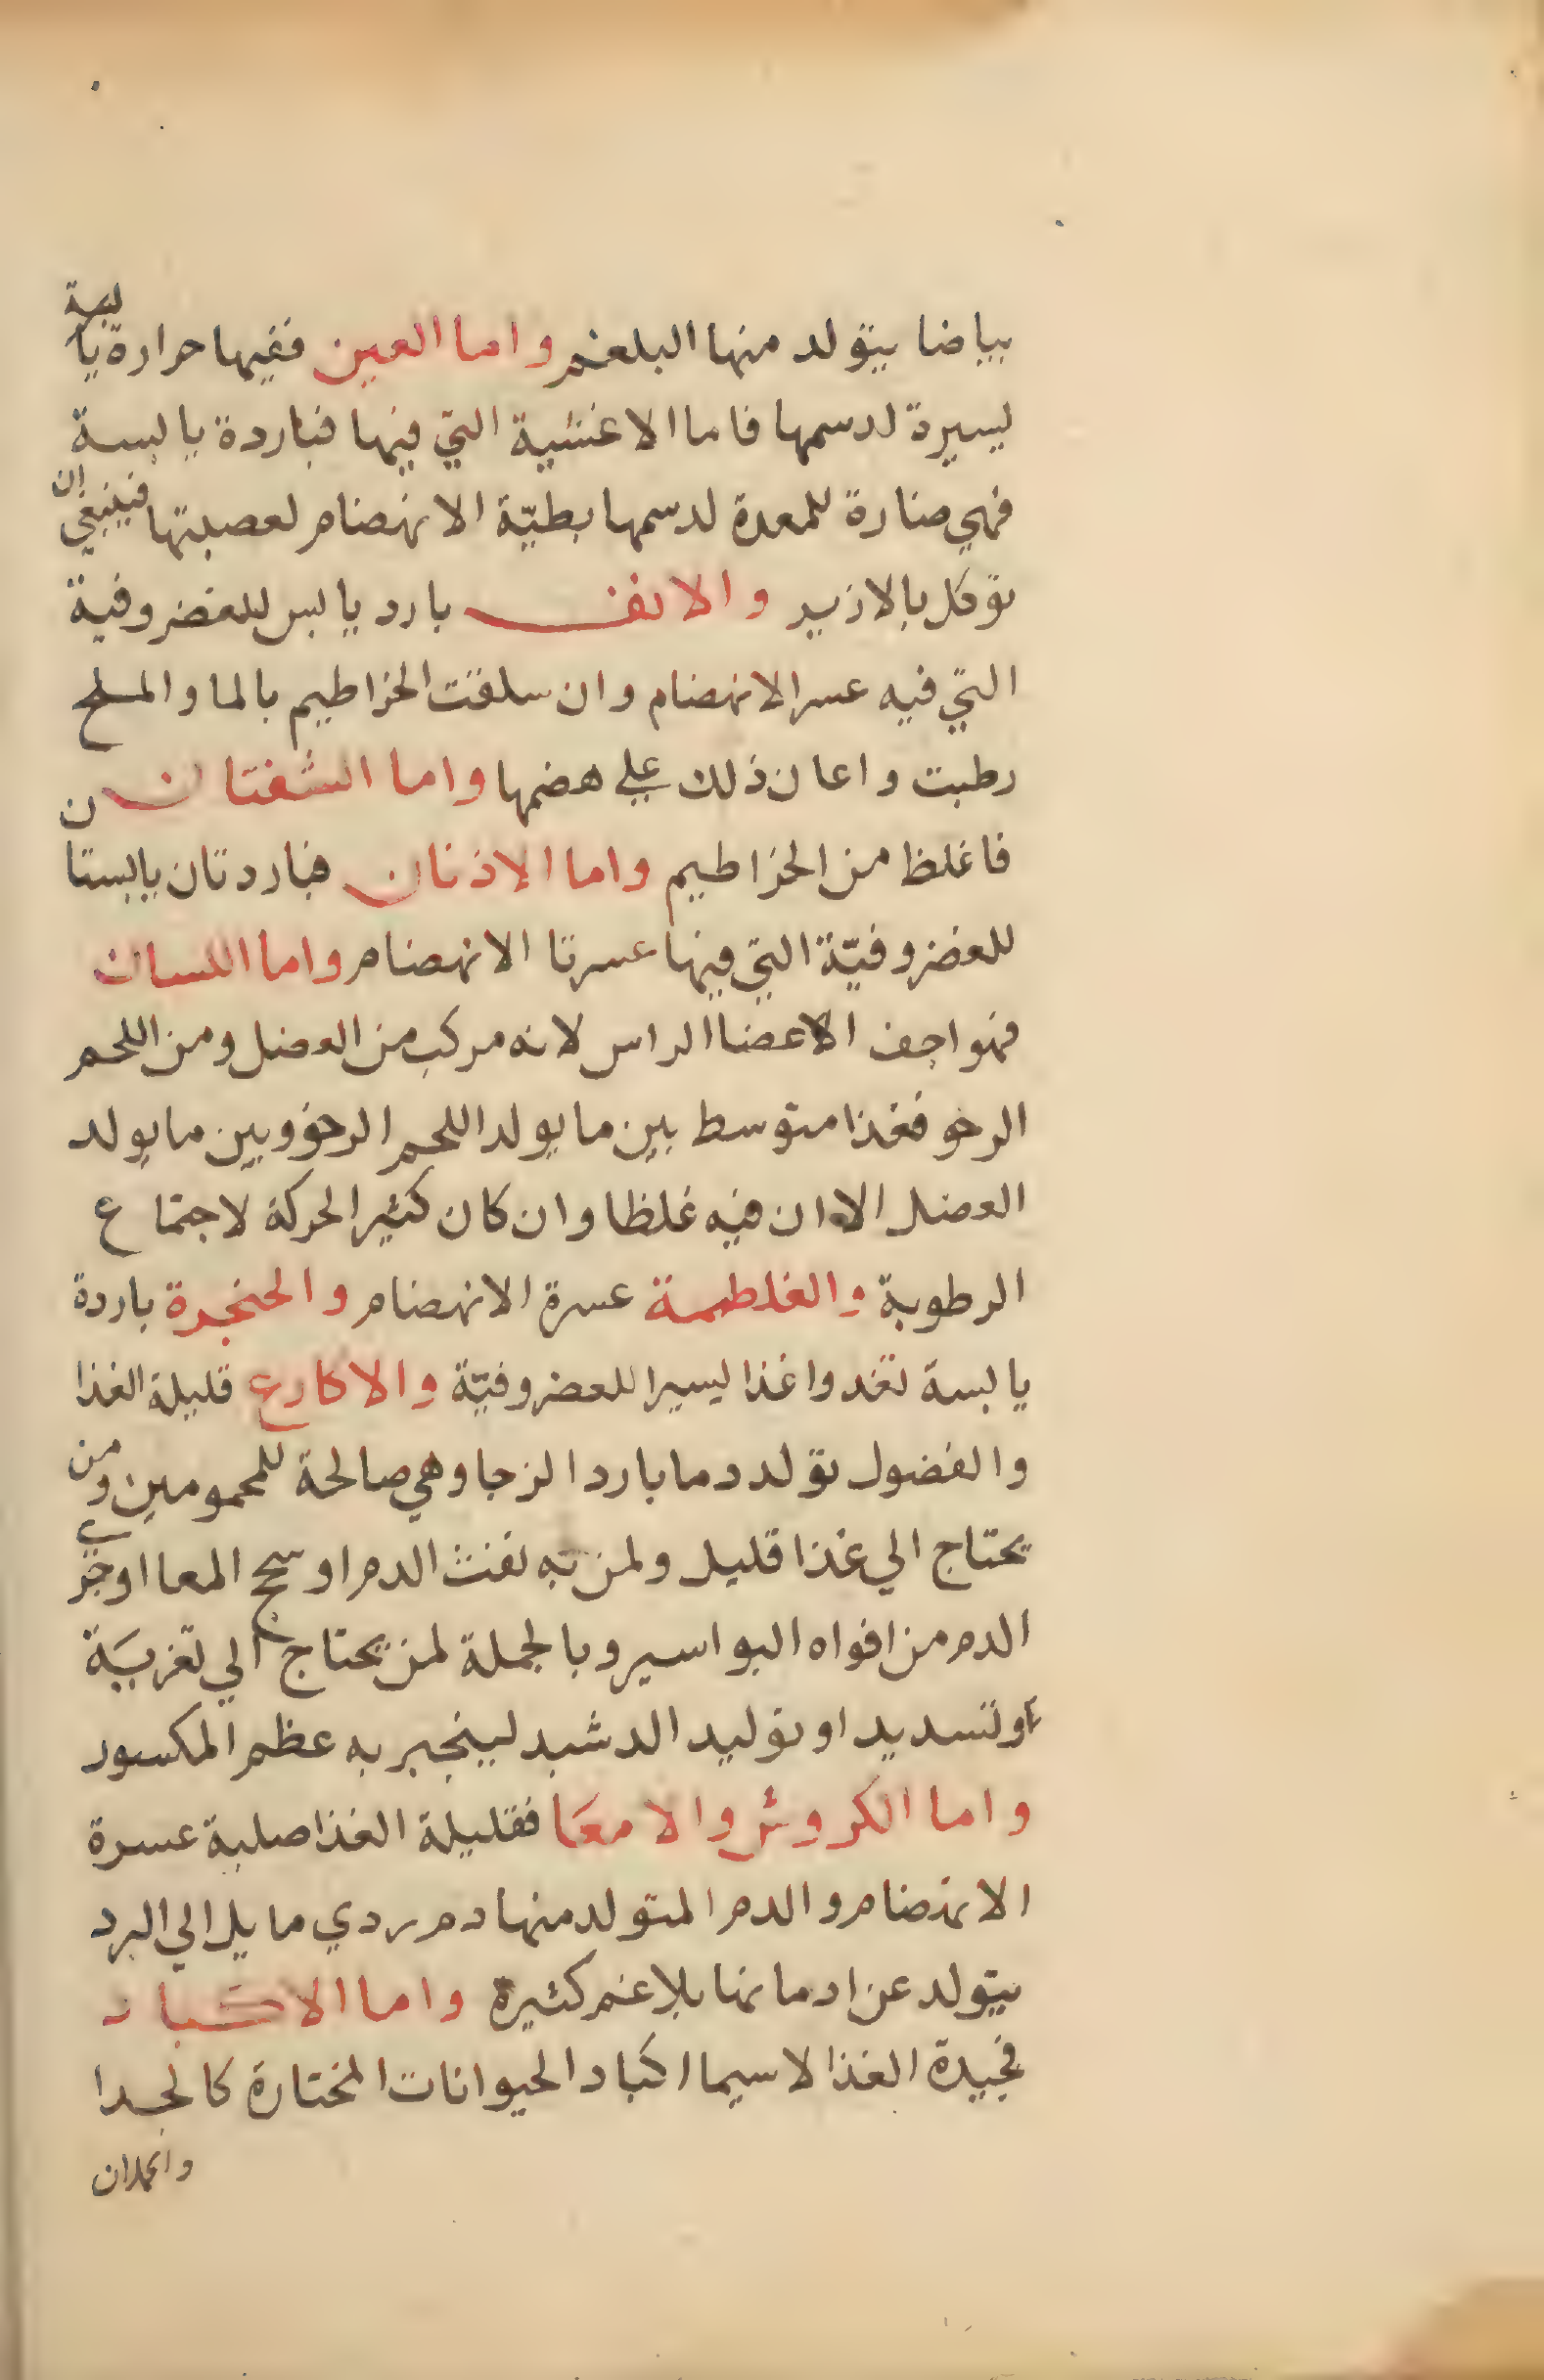 بياضا يتولد منها البلغم واما العين ففيها حرارة يابسة
يسيرة لدسمها فاما الاغشية التي فيها فباردة يابسة
فهي ضارة للمعدة لدسمها بطيّة الانهضام لعصبتها فينبغي ان
توكل بالازير والانف بارد يابس للغضروفية
التي فيه عسر الانهضام وان سلقت الخراطيم بالما والملح
رطبت واعان ذلك علي هضمها واما الشفتان
فاغلظ من الخراطيم واما الاذنان فباردتان يابستان
للغضروفيّة التي فيها عسرتا الانهضام واما اللسان
فهو اجف الاعضا الراس لانه مركب من العضل ومن اللحم
الرخو فغذا متوسط بين ما يولد اللحم الرخو وبين ما يولد
العضل الا ان فيه غلظا وان كان كثير الحركة لاجتماع
الرطوبة والغلطمة عسرة الانهضام والحنجرة باردة
يابسة تغدوا غذا يسيرا للغضروفيّة والاكارع قليلة الغذا
والفضول تولد دما باردا لزجا وهي صالحة للمحمومين ومن
يحتاج الي غذا قليل ولمن به نفث الدم او سحج المعا او جري
الدم من افواه البواسير وبالجملة لمن يحتاج الي تغرية
او تسديد او توليد الدشبد لينجبر به عظم المكسور
واما الكروش والامعا فقليلة الغذا صلبة عسرة
الانهضام والدم المتولد منها دم ردي مايل الي البرد
يتولد عن ادمانها بلاغم كثيرة واما الاكباد
فجيدة الغذا لاسيما اكباد الحيوانات المختارة كالجدا
والحملان